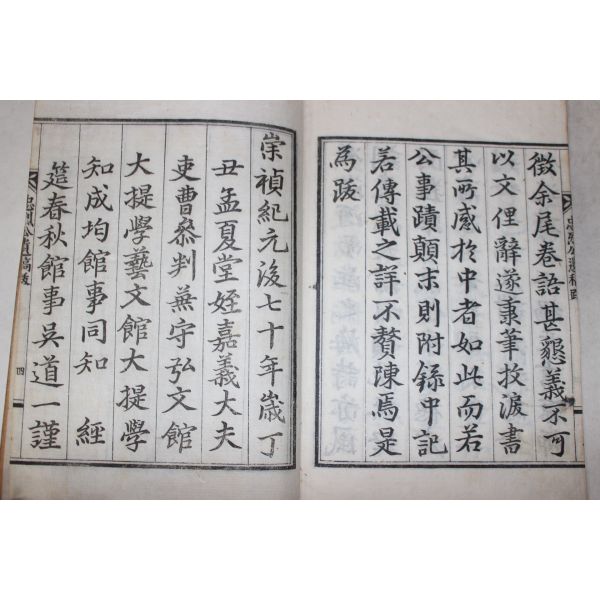 徵余尾卷語甚懇義不可
以文俚辭遂秉筆抆淚書
其所感於中者如此而若
公事蹟顛末則附錄中記
若傳載之詳不贅陳焉是
為跋
崇禎紀元後七十年歲丁
丑孟夏堂姪嘉義大夫
吏曹叅判兼守弘文館
大提學藝文館大提學
知成均館事同知 經
筵春秋館事吳道一謹
忠烈公遺稿跋
四